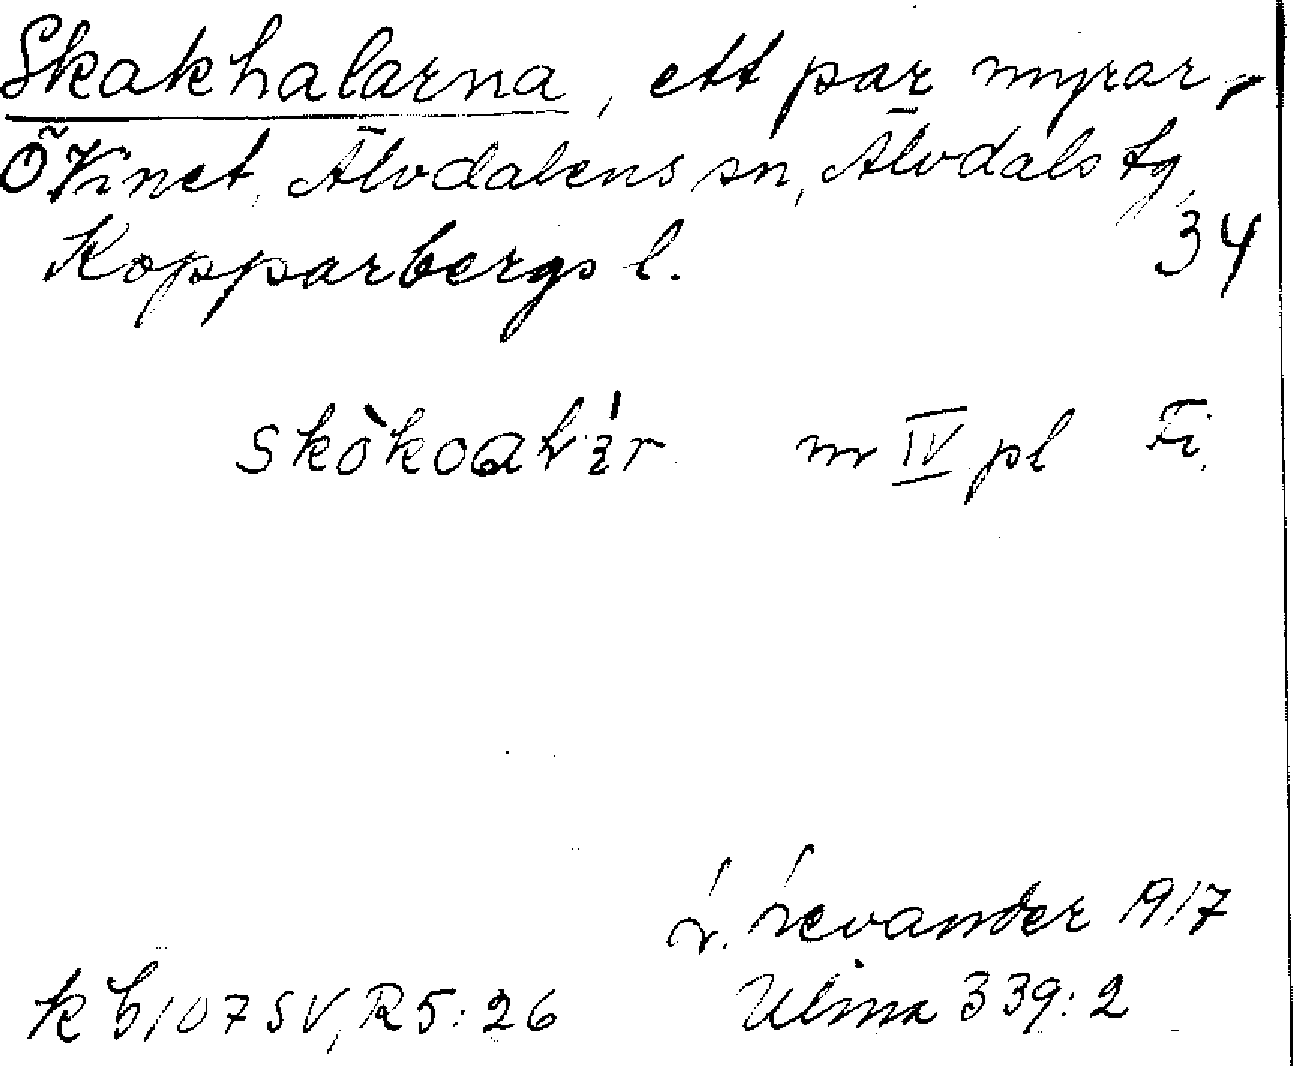 Skakhalarna, ett par myrar,
Ö Kinet, Älvdalens sn, Älvdals tg,
Kopparbergs l. 34
m IV pl Fi.
L. Levander 1917
kb 107 SV, R5:26 Ulma 339:2